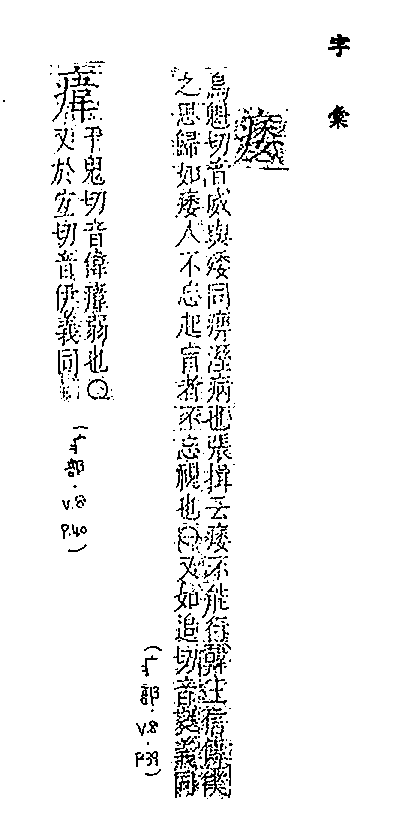 字彙
痿
烏魁切音威與矮同痹溼病也張揖云痿不能行韓王信傳僕
之思歸如痿人不忘起盲者不忘視也○又如追切音甤義同
(疒部.V.8.P39)
㾁
于鬼切音偉㾁弱也○
又於宜切音伊義同
(疒部.V.8P.40)